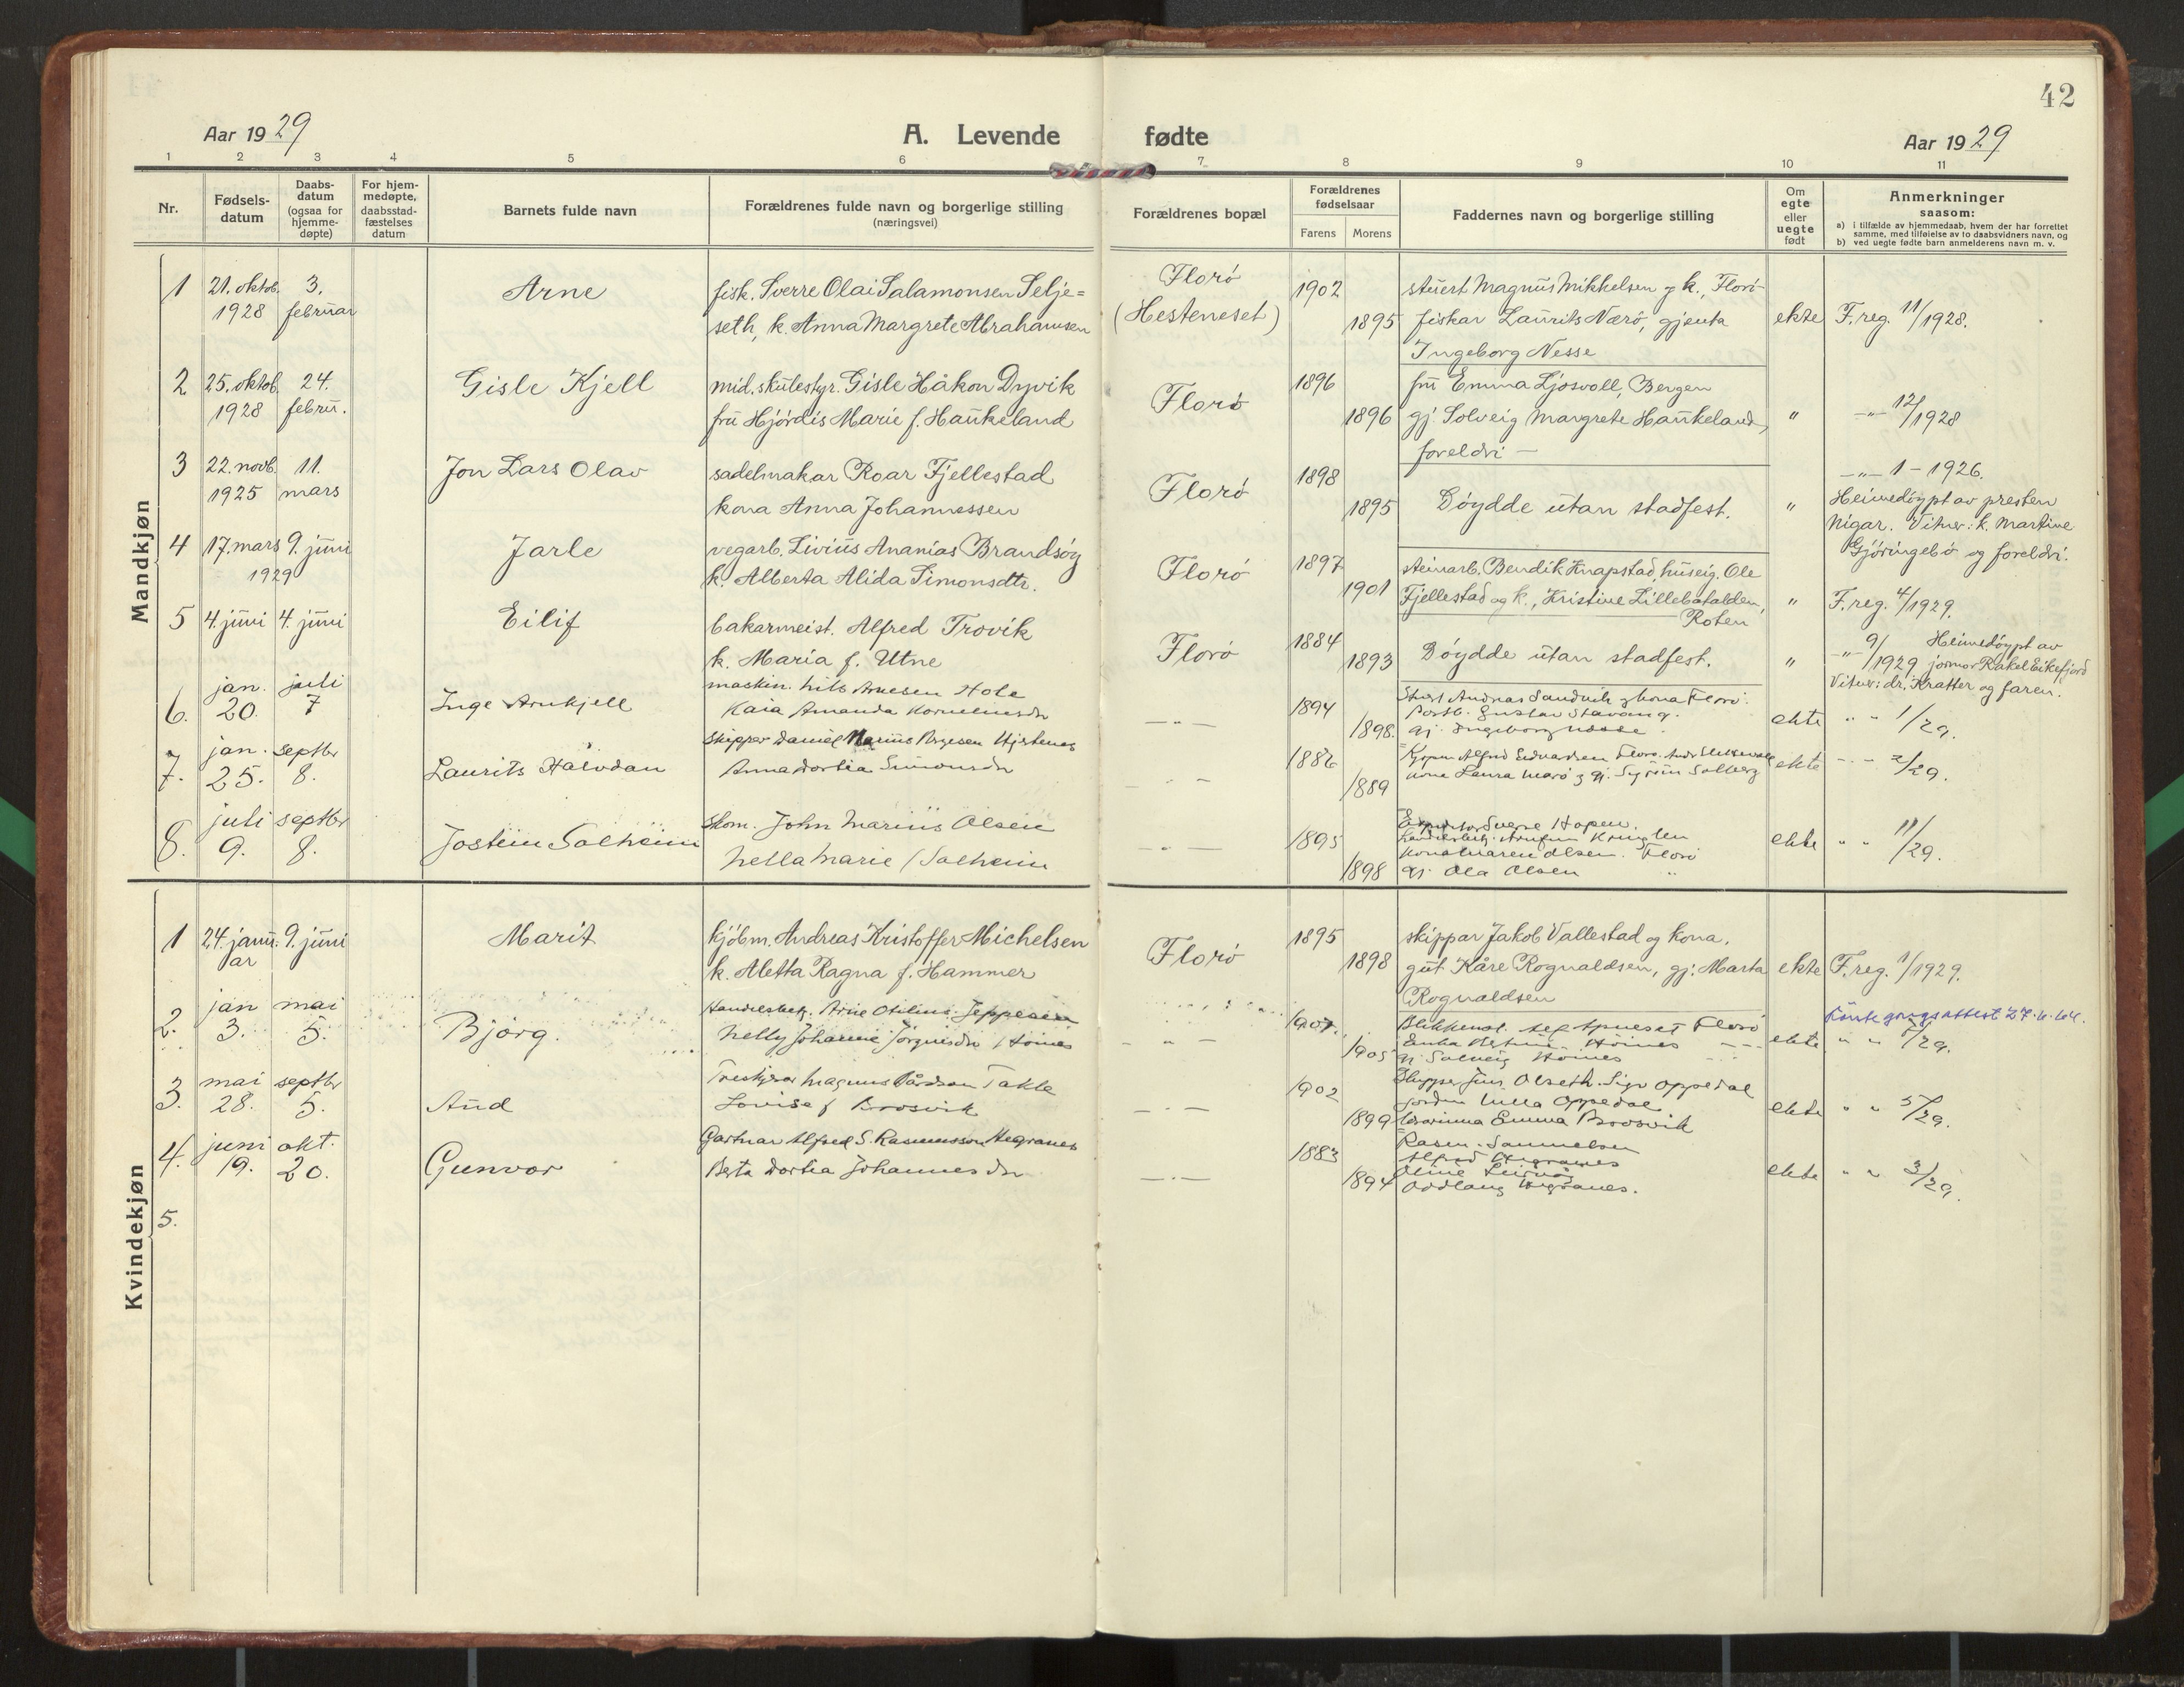 42
Aar 1929
A. Levende fødte
Aar 1929
1 2 3 4 5 6 7 8 9 10 11
Nr.
Fødsels-
datum
Daabs-
datum
(ogsaa for
hjemme-
døpte)
For hjem-
medøpte,
daabsstad-
fæstelses
datum
Barnets fulde navn
Forældrenes fulde navn og borgerlige stilling
(næringsvei)
Forældrenes bopæl
Forældrenes
fødselsaar
Farens Morens
Faddernes navn og borgerlige stilling
Om
egte
eller
uegte
født
Anmerkninger
saasom:
a) i tilfælde av hjemmedaab, hvem der har forrettet
samme, med tilføielse av to daabsvidners navn, og
b) ved uegte fødte barn anmelderens navn m. v.
Mandkjøn
1 21. oktob. 1928 3. februar
Arne
fisk. Sverre Olai Salamonsen Selje=
seth, k. Anna Margrete Abrahamsen
Florø
(Hesteneset)
1902 1895
stuert Magnus Mikkelsen og k., Florø
fiskar Laurits Nærø, gjenta
Ingeborg Nesse
ekte
F. reg. 11/1928.
2 25. oktob. 1928 24. febru.
Gisle Kjell
mid. skulestyr. Gisle Håkon Dyvik
fru Hjørdis Marie f. Haukeland
Florø
1896 1896
fru Emma Ljosvoll, Bergen
gj. Solveig Margrete Haukeland,
foreldri —
"
—"— 12/1928
3 22. novb. 1925 11. mars
Jon Lars Olav
sadelmakar Roar Fjellestad
kona Anna Johannessen
Florø
1898 1895
Døydde utan stadfest.
"
—"— 1 - 1926.
Heimedøypt av presten
Nigar. Vitner: k. Martine
Gjøringebø og foreldri.
4 17. mars 1929 9. juni
Jarle
vegarb. Livius Ananias Brandsøy
k. Alberta Alida Simonsdtr.
Florø
1897 1901
steinarb. Bendik Knapstad, huseig. Ole
Fjellestad og k., Kristine Lillebatalden,
Roten
"
F. reg. 4/1929.
5 4. juni 4. juni
Eilif
bakarmeist. Alfred Trovik
k. Maria f. Utne
Florø
1884 1893
Døydde utan stadfest.
"
—"— 9/1929 Heimedøypt av
jormor Rakel Eikefjord
Vitner: dr. Kratter og faren.
6. jan. 20. juli 7
Inge Arnkjell
maskin. Nils Arnesen Hole
Kaia Amanda Kornelius dr
— " —
1894 1898.
Andreas Sandvik og kona Florø.
Gustav Stavang.
gj. Ingeborg Nesse.
ekte
" " 1/29.
7. jan. 25. septbr 8.
Laurits Halvdan
Skipper Daniel Marius
Anna Dortea Simonsdr
— " —
1886 1889
Kjøpm. Alfred Edvardsen Florø.
kona Laura Nærø og gj. Sigrun Solberg
ekte
- " - 2/29.
8. juli 9. septbr 8.
Jostein Solheim
Skom. John Marius Olsen
Nella Marie f Solheim
— " —
1895 1898
Sverre Hopen.
kona Maren Olsen. Florø
gj. Ola Olsen "
ekte
" " 11/29.
Kvindekjøn
1 24. janu. ar 9. juni
Marit
kjøbm. Andreas Kristoffer Michelsen
k. Aletta Ragna f. Hammer
Florø
1895 1898
skippar Jakob Vallestad og kona.
gut. Kåre Rognaldsen, gj. Marta
Rognaldsen
ekte
F. reg. 1/1929.
2. jan 3. mai 5.
Bjørg.
Handelsbetj. Arne Otilius Jeppesen
Nelly Johanne Jørginsdr Hoines
- " -
1907. 1905
Florø
Hoines
gj. Solveig Hoines
ekte
27.6.64.
" " 1/29.
3. mai 28. septbr 5.
Aud
Magnus Bårdsen Takle
Lovise f Brosvik
— " —
1902 1899
Jens Olseth. Sigv Oppedal
Jordm. Oppedal
Emma Brosvik
ekte
" " 5/29.
4. juni 19. okt. 20.
Gunvor
Gartnar Alfred S. Rasmusson Hegranes
Berta Dortea Johannes dr
— " —
1883 1894
Rasm. Samuelsen
Alfred Hegranes
Oline
Oddlaug Hegranes.
ekte
" " 3/29.
5.